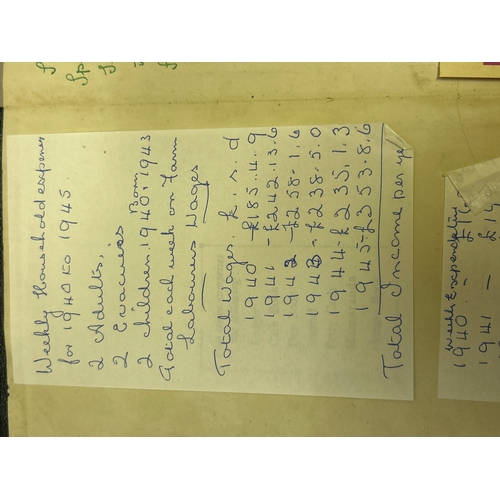 Weekly Household expenses
for 1940 to 1945.
2 Adults,
2 Evacuees
2 children Born 1940, 1943
Total each week on Farm
Labourers Wages
Total Wages. £. s. d
1940 - £185..4..9
1941 - £242.13.6
1942 - £258-1.6
1943 - £238-5.0
1944 - £235.1.3
1945 - £353.8.6
Total Income per
Weekly Expenditure
1940 -
1941 -